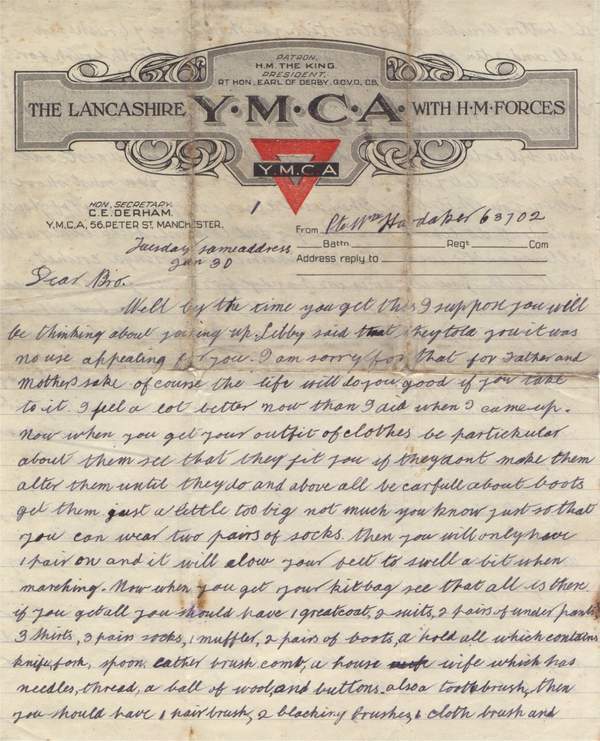 PATRON.
H.M. THE KING
PRESIDENT.
RT HON. EARL OF DERBY, G.C.V.O., C.B.
THE LANCASHIRE Y·M·C·A· WITH H·M·FORCES
Y.M.C.A
HON. SECRETARY.
C.E. DERHAM.
Y.M.C.A, 56, PETER ST, MANCHESTER.
1
From Pte Wm Hardaker 63702
Battn. Regt. Com
Address reply to
Tuesday same address
Jan 30
Dear Bro.
Well by the time you get this I suppose you will
be thinking about joining up. Libby said that they told you it was
no use appealing for you. I am sorry for that for Father and
Mothers sake of course the life will do you good if you take
to it. I feel a lot better now than I did when I came up.
Now when you get your outfit of clothes be partickular
about them see that they fit you if they dont make them
alter them until they do and above all be carfull about boots
get them just a little too big not much you know just so that
you can wear two pairs of socks. then you will only have
1 pair on and it will alow your feet to swell a bit when
marching. Now when you get your kitbag see that all is there
if you get all you should have 1 greatcoat, 2 suits, 2 pairs of under pants
3 shirts, 3 pair socks, 1 muffler, 2 pairs of boots, a hold all which contains
knife, fork, spoon. lather brush comb, a house wife which has
needles, thread, a ball of wool, and buttons. also a tooth brush, then
you should have 1 hair brush, 2 blacking brushes, 1 cloth brush and